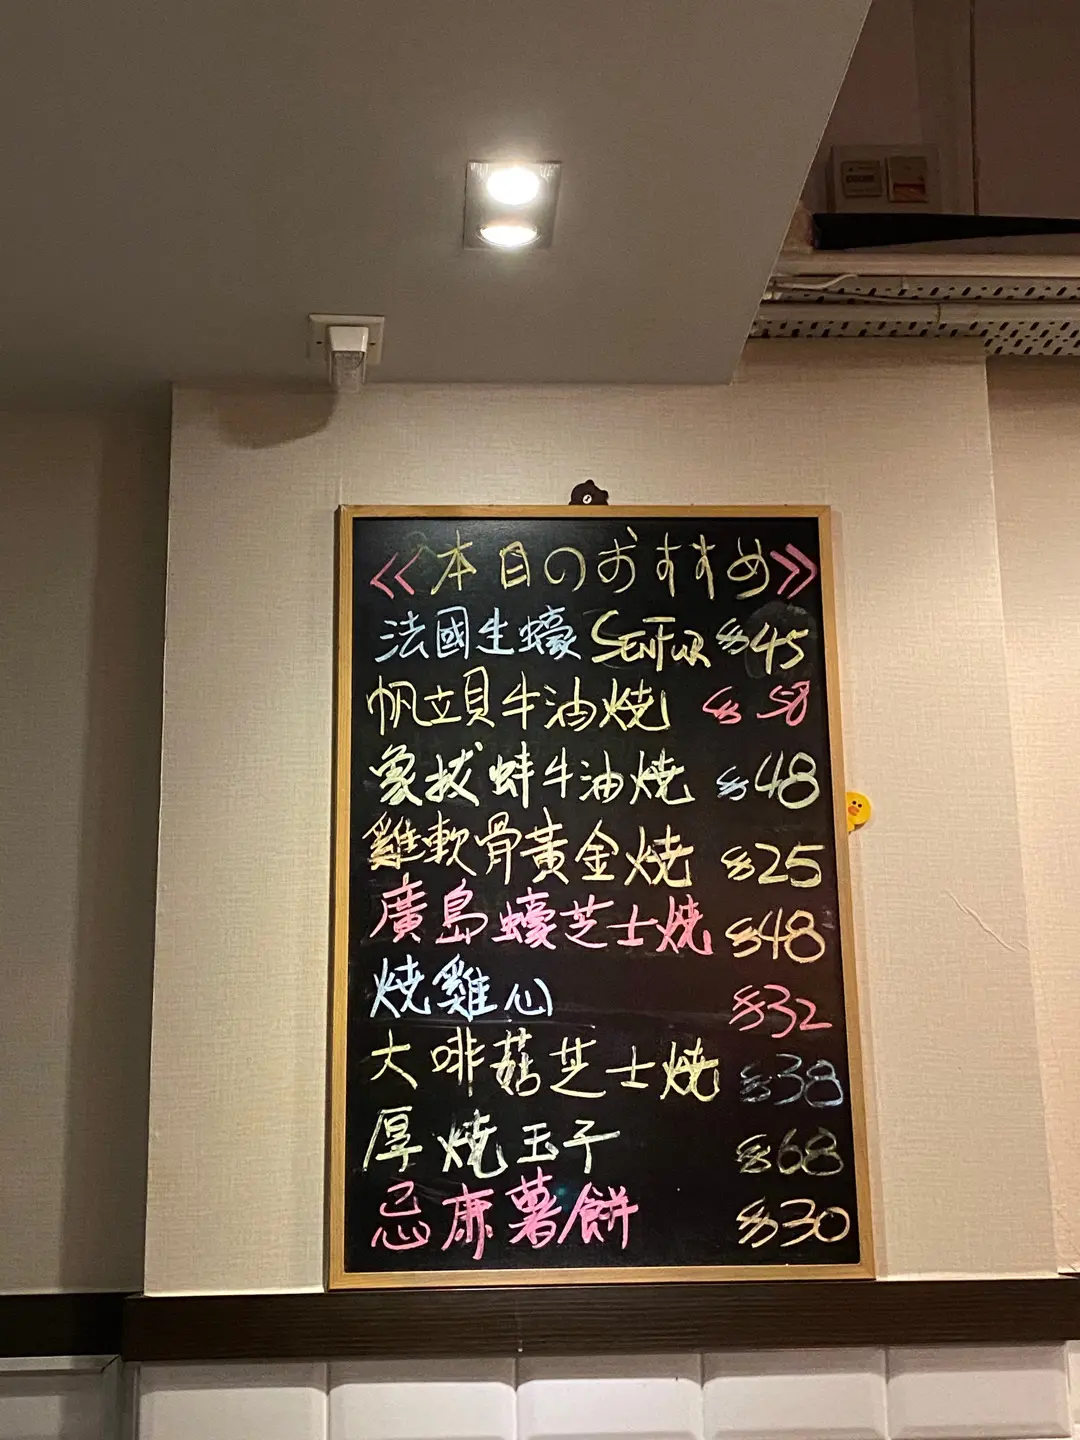 <<本日のおすすめ>>
法國生蠔 SENTUR $45
帆立貝牛油燒 $58
象拔蚌牛油燒 $48
雞軟骨黃金燒 $25
廣島蠔芝士燒 $48
燒雞心 $32
大啡菇芝士燒 $38
厚燒玉子 $68
忌廉薯餅 $30